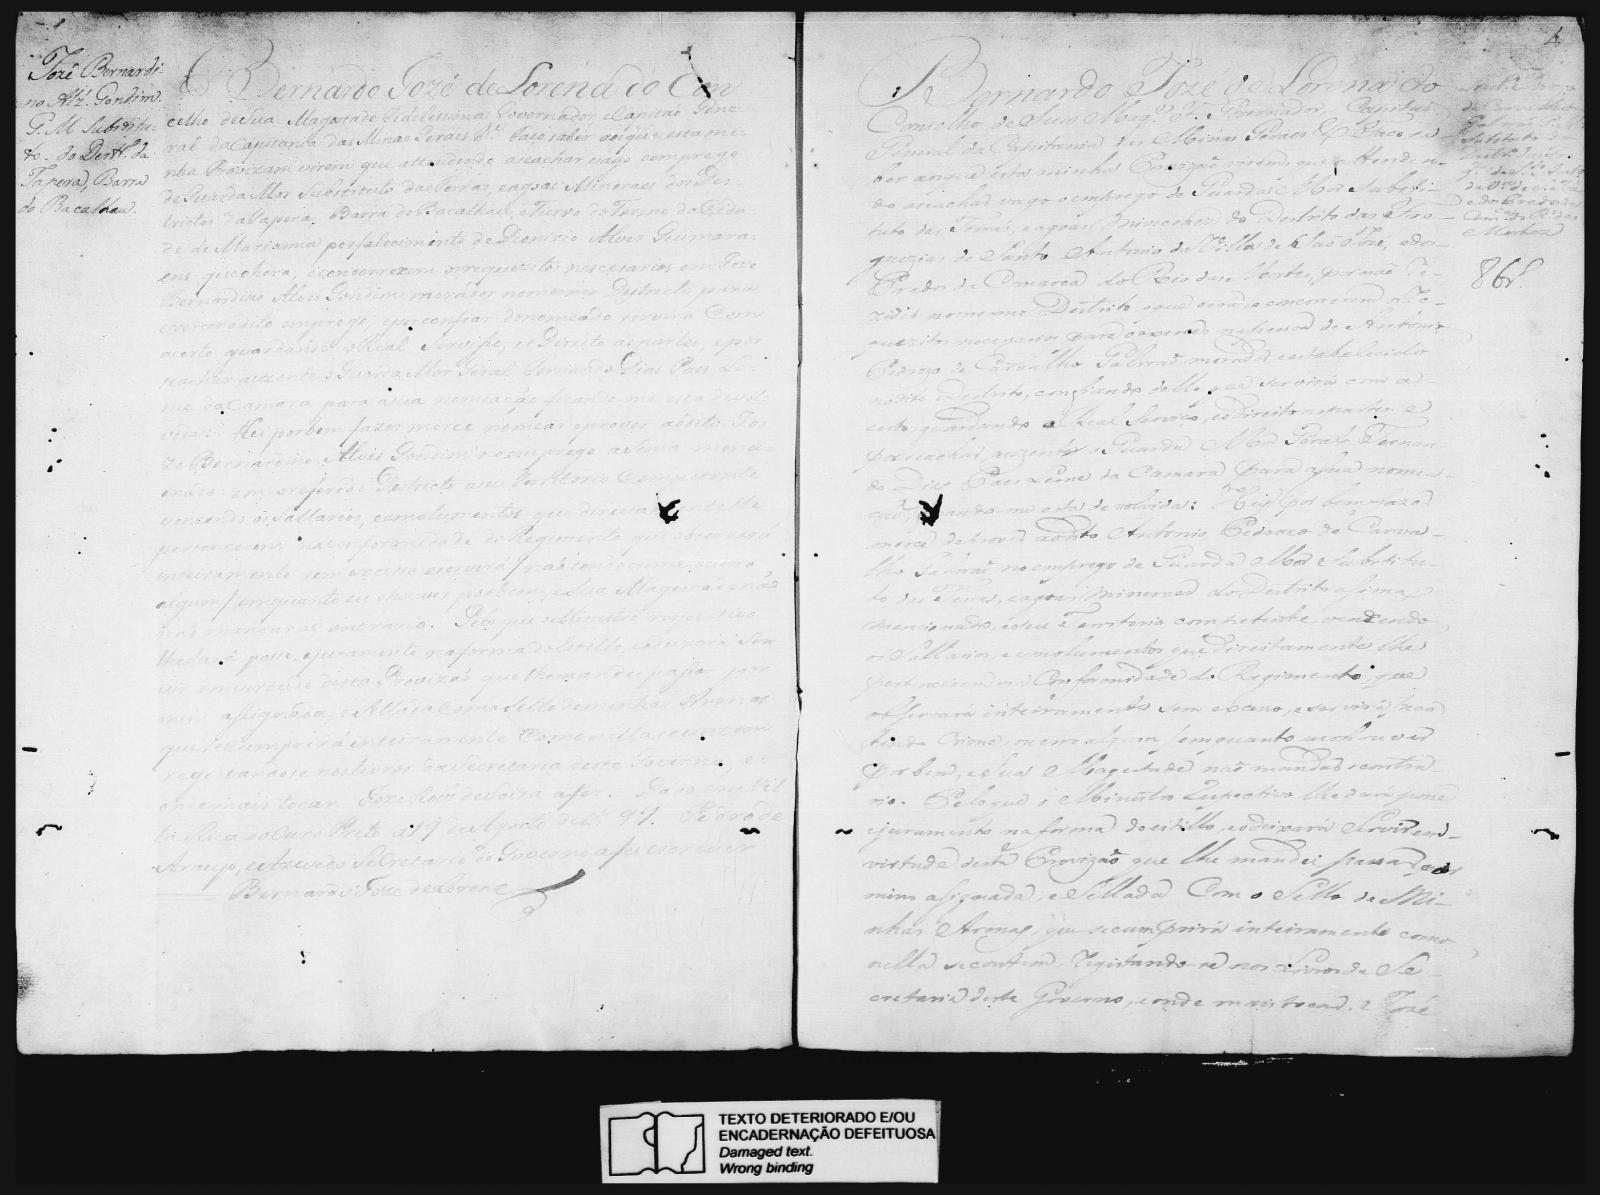 Jozé Bernardi-
no Alz. Gondim
G. M. Substitu-
to do Destr. da
Tapera, Barra
do Bacalhau
Bernardo Jozé de Lorena do Con
celho de Sua Magestade Fidelissima Governador, e Capitão Gene-
ral da Capitania das Minas Geraes &ca. Faço saber aos que esta mi-
nha Provizam virem que attendendo a se achar vago o emprego
de Guarda Mor Substituto das Terras, e agoas Mineraes dos Des-
trictos da Tapera, Barra do Bacalhau, e Turvo do Termo da Cida-
de de Marianna por falecimento de Dionizio Alves Guimara-
ens que o hera, e concorrerem os requezitos nescesarios em Joze
Bernardino Alves Gondim morador no mesmo Districto para
exercer o dito emprego, e por confiar do nomeado servirá Com
acerto guardando o Real Serviço, e o Direito as partes, e por
se achar auzente o Guarda Mor Geral Fernando Dias Paes Le-
me da Camara para a sua nomeação ficando-me esta devol-
vida: Hei por bem fazer mercê nomear e prover ao dito Jo-
ze Bernardino Alves Gondim no emprego asima menci-
onado em o referido Destricto a seu Territorio Competente
vencendo os Sallarios, e emolumentos que direitamente lhe
pertencerem na conformidade do Regimento que observará
inteiramente sem excesso e servirá / não tendo crime, ou erro
algum / emquanto eu o houver por bem, e Sua Magestade não
não mandar o contrario. Pelo que o Ministro respectivo
lhe dará posse, e juramento na forma do estillo, e o deixará Ser-
vir em virtude desta Provizão que lhe mandei pasar por
mim assignada, e Sellada Com o Sello de minhas Armas
que se cumprirá inteiramente Como nella se contem
registandose nos livros da Secretaria deste Governo, e
onde mais tocar. Joze Roiz de Soiza a fez. Dada em Vil
la Rica do Ouro Preto a 19 de Agosto de 1797. Pedro de
Araujo, e Azevedo Secretario do Governo a fes escrever
Bernardo Joze de Lorena
4
Bernardo Jozé de Lorena do
Conselho de Sua Mag.e F. Governador, e Capitao
General da Capitania das Minas Geraes & Faço sa-
ber aos que esta minha Provizão virem, que attenden-
do a se achar vago o emprego de Guarda Mor Substi-
tuto das Terras, e agoas Mineraes do Destrito das Fre-
guezias de Santo Antonio da Villa de S. Jozé, e do
Prados da Comarca do Rio das Mortes, por não re-
zidir no mesmo Destrito e concorrerem os re-
quezitos necessarios para o exercer na pessoa de Antonio
Pedrozo de Carvalho Galvão morador e estabelecido
no dito Destrito, confiando delle, que servirá com a-
certo guardando o Real Serviço, e o direito as partes. e
por se achar auzente o Guarda Mor Geral Fernan-
do Dias Paes Leme da Camara para a sua nomea-
ção, ficando-me esta devolvida: Hei por bem fazer
mercê de prover ao dito Antonio Pedrozo de Carva-
lho Galvão no emprego de Guarda Mor Substitu-
to das Terras, e agoas Mineraes do Destrito asima
mencionado, e seu Territorio competente, vencendo
os Sallarios, e emolumentos que direitamente lhe
pertencerem na Conformidade do Regimento, que
observará inteiramente sem excesso, e servirá / não
tendo Crime, ou erro algum / emquanto eu o houver
por bem, e Sua Magestade não mandar o contra-
rio. Pelo que o Ministro respectivo lhe dará posse
e juramento na forma do estillo, e o deixará Servir em
virtude desta Provizão que lhe mandei passar por
mim asignada, e Sellada Com o Sello de Mi-
nhas Armas, que se cumprirá inteiramente como
nella se contem, Registando-se nos Livros da Se-
cretaria deste Governo, e onde mais tocar. e Jozé
de Carvalho
86f.
TEXTO DETERIORADO E/OU
ENCADERNAÇÃO DEFEITUOSA
Damaged text.
Wrong binding